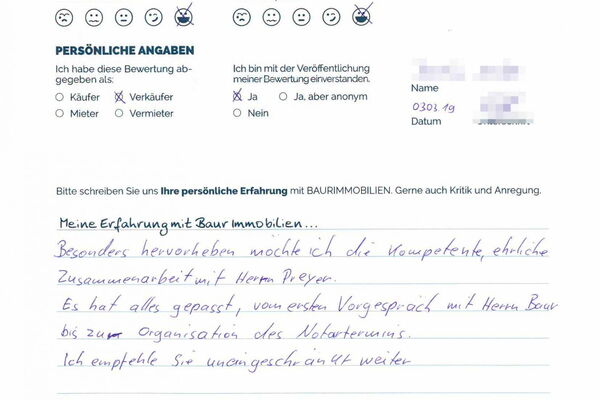 PERSÖNLICHE ANGABEN
Ich habe diese Bewertung ab-
gegeben als:
Käufer
Verkäufer
Mieter
Vermieter
Ich bin mit der Veröffentlichung
meiner Bewertung einverstanden.
Ja
Ja, aber anonym
Nein
Name
03.03.19
Datum
Bitte schreiben Sie uns Ihre persönliche Erfahrung mit BAURIMMOBILIEN. Gerne auch Kritik und Anregung.
Meine Erfahrung mit Baur Immobilien...
Besonders hervorheben möchte ich die kompetente, ehrliche
Zusammenarbeit mit Herrn Preyer.
Es hat alles gepasst, vom ersten Vorgespräch mit Herrn Baur
bis zur Organisation des Notartermins.
Ich empfehle Sie uneingeschränkt weiter